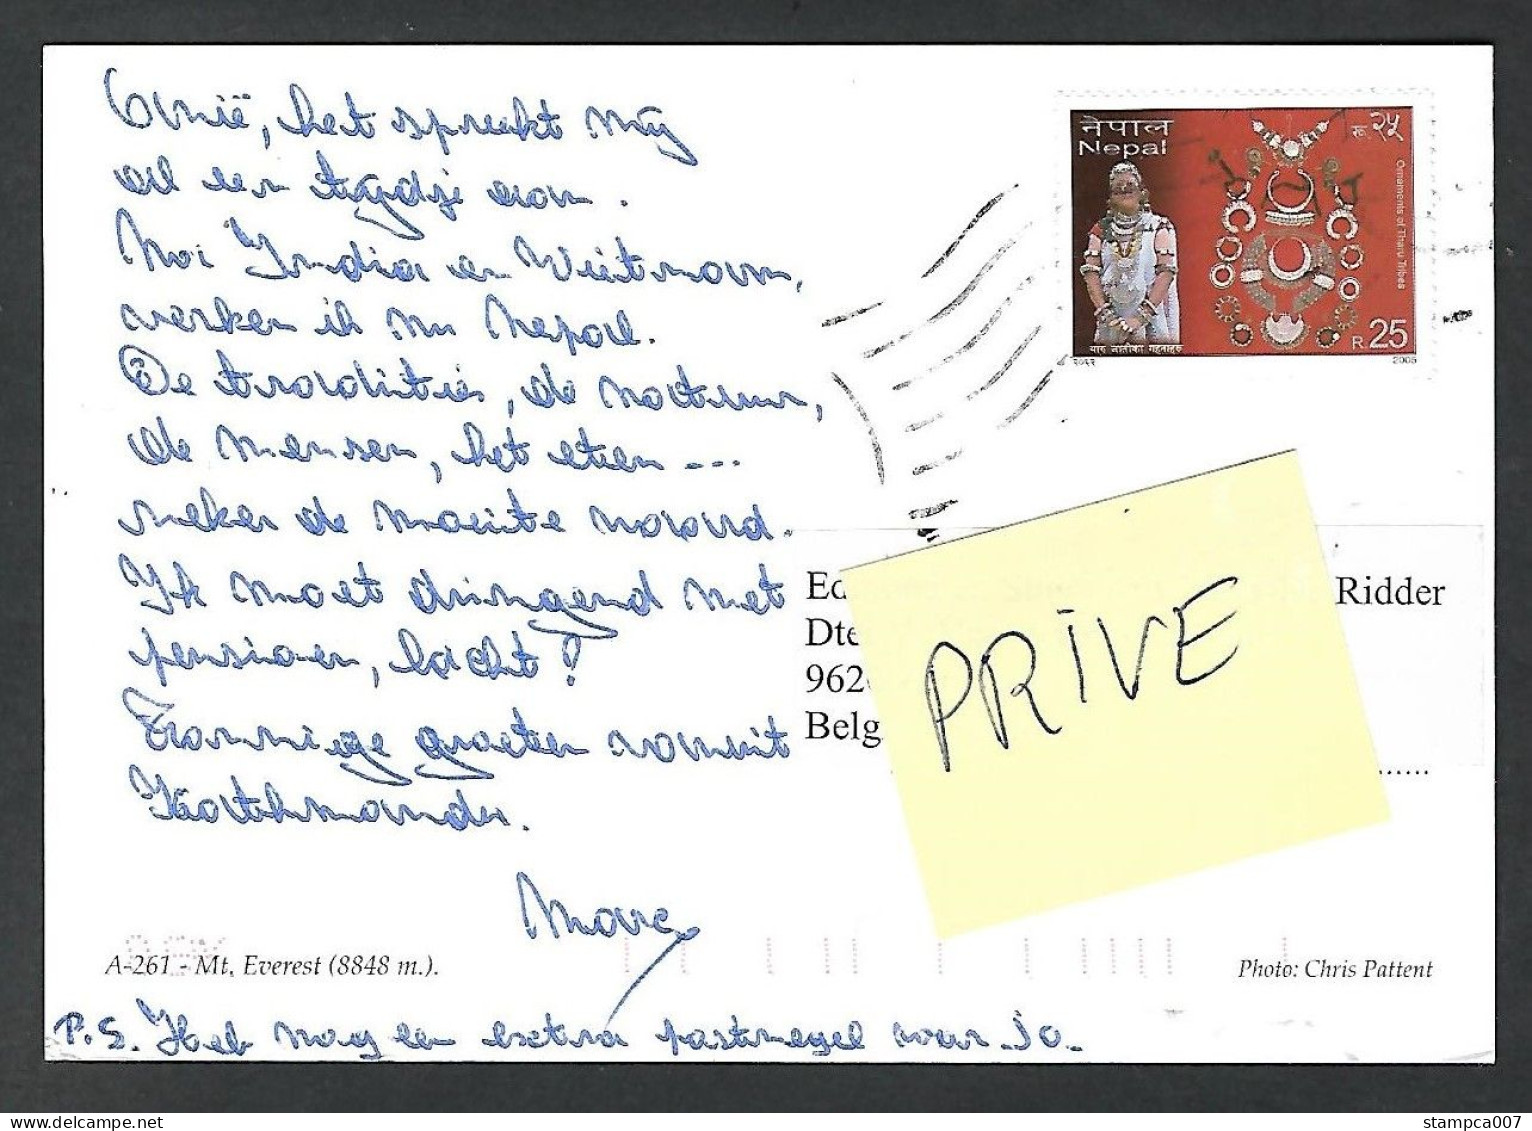 Azië, het spreekt mij
al een tijdje aan.
Na India en Vietnam,
verken ik nu Nepal.
De tradities, de natuur,
de mensen, het eten ---
zeker de moeite waard.
Ik moet dringend met
pensioen, lacht!
Zonnige groeten vanuit
Kathmandu.
Marc
A-261 - Mt. Everest (8848 m.).
P.S. Heb nog een extra postzegel voor Jo.
नेपाल
Nepal
रू २५
Ornaments of Tharu Tribes
R. 25
थारु जातीका गहनाहरु
२०६२
2005
Ridder
Dte
962
Belg
PRIVE
Photo: Chris Pattent
stampca007